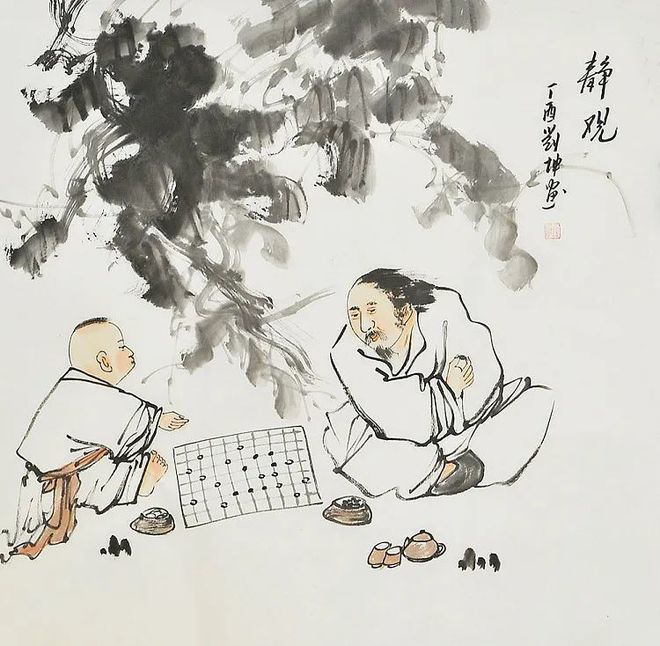 静观
丁酉刘坤画